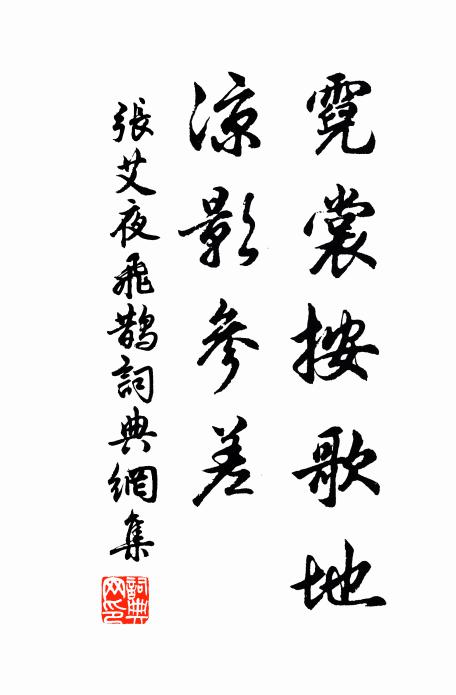 霓裳按歌地
涼影參差
張艾夜飛鵲詞典網集
詞典網印